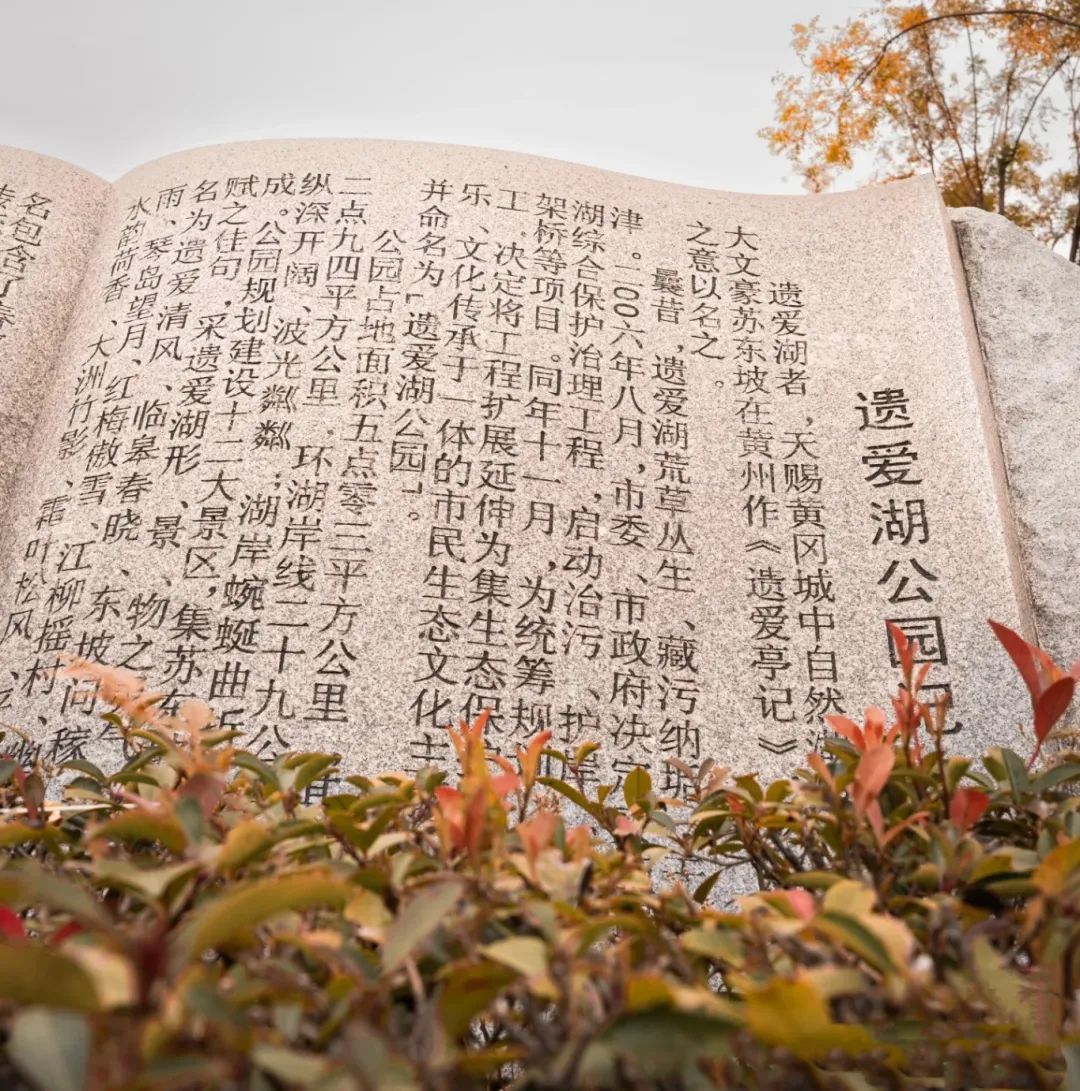 遗爱湖公园记
遗爱湖者，天赐黄冈城中自然
大文豪苏东坡在黄州作《遗爱亭记》
之意以名之。
曩昔，遗爱湖荒草丛生、藏污纳垢
津。二00六年八月，市委、市政府决定
湖综合保护治理工程，启动治污、护岸
架桥等项目。同年十一月，为统筹规
工，决定将工程扩展延伸为集生态保
乐、文化传承于一体的市民生态文化
并命名为“遗爱湖公园”。
公园占地面积五点零三平方公里
二点九四平方公里，环湖岸线二十九公
纵深开阔、波光粼粼；湖岸蜿蜒曲
成。公园规划建设十二大景区，集苏东
赋之佳句，采遗爱湖形、景、物之
名为遗爱清风、临皋春晓、东坡问稼
雨、琴岛望月、红梅傲雪、江柳摇村、幽
水韵荷香、大洲竹影、霜叶松风
名包含了春